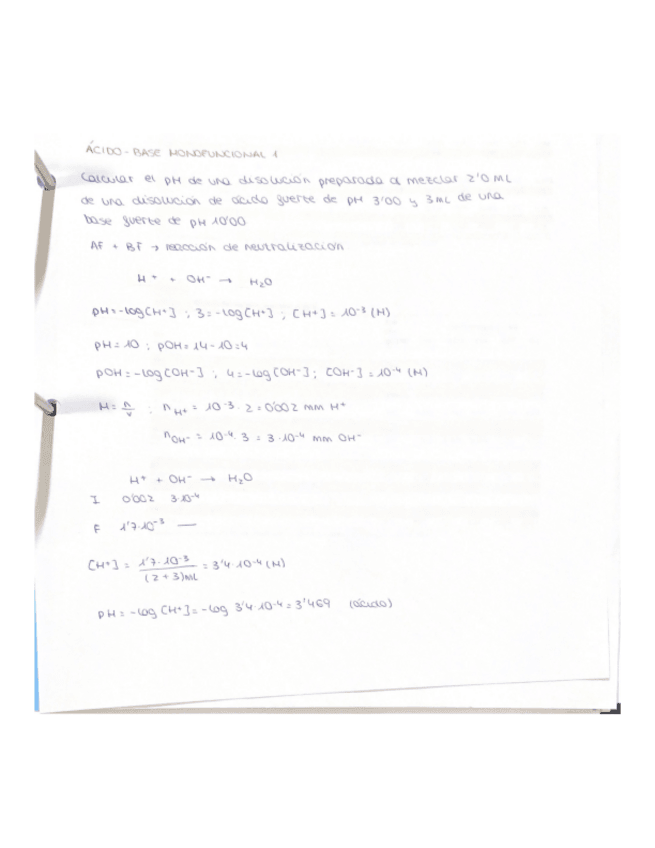 ÁCIDO-BASE MONOFUNCIONAL 1
Calcular el pH de una disolución preparada al mezclar 2'0 ML
de una disolución de ácido fuerte de pH 3'00 y 3 ML de una
base fuerte de pH 10'00
AF + BF → reacción de neutralización
H⁺ + OH⁻ → H₂O
pH=-log[H⁺] ; 3=-log[H⁺] ; [H⁺]=10⁻³ (M)
pH=10 ; pOH=14-10=4
pOH=-log[OH⁻] ; 4=-log[OH⁻] ; [OH⁻]=10⁻⁴ (M)
M= n/v ; nH⁺ = 10⁻³ · 2 = 0'002 mm H⁺
nOH⁻ = 10⁻⁴ · 3 = 3·10⁻⁴ mm OH⁻
H⁺ + OH⁻ → H₂O
I 0'002 3·10⁻⁴
F 1'7·10⁻³ —
[H⁺] = 1'7·10⁻³ / (2+3)ML = 3'4·10⁻⁴ (M)
pH=-log [H⁺]=-log 3'4·10⁻⁴=3'469 (ácido)